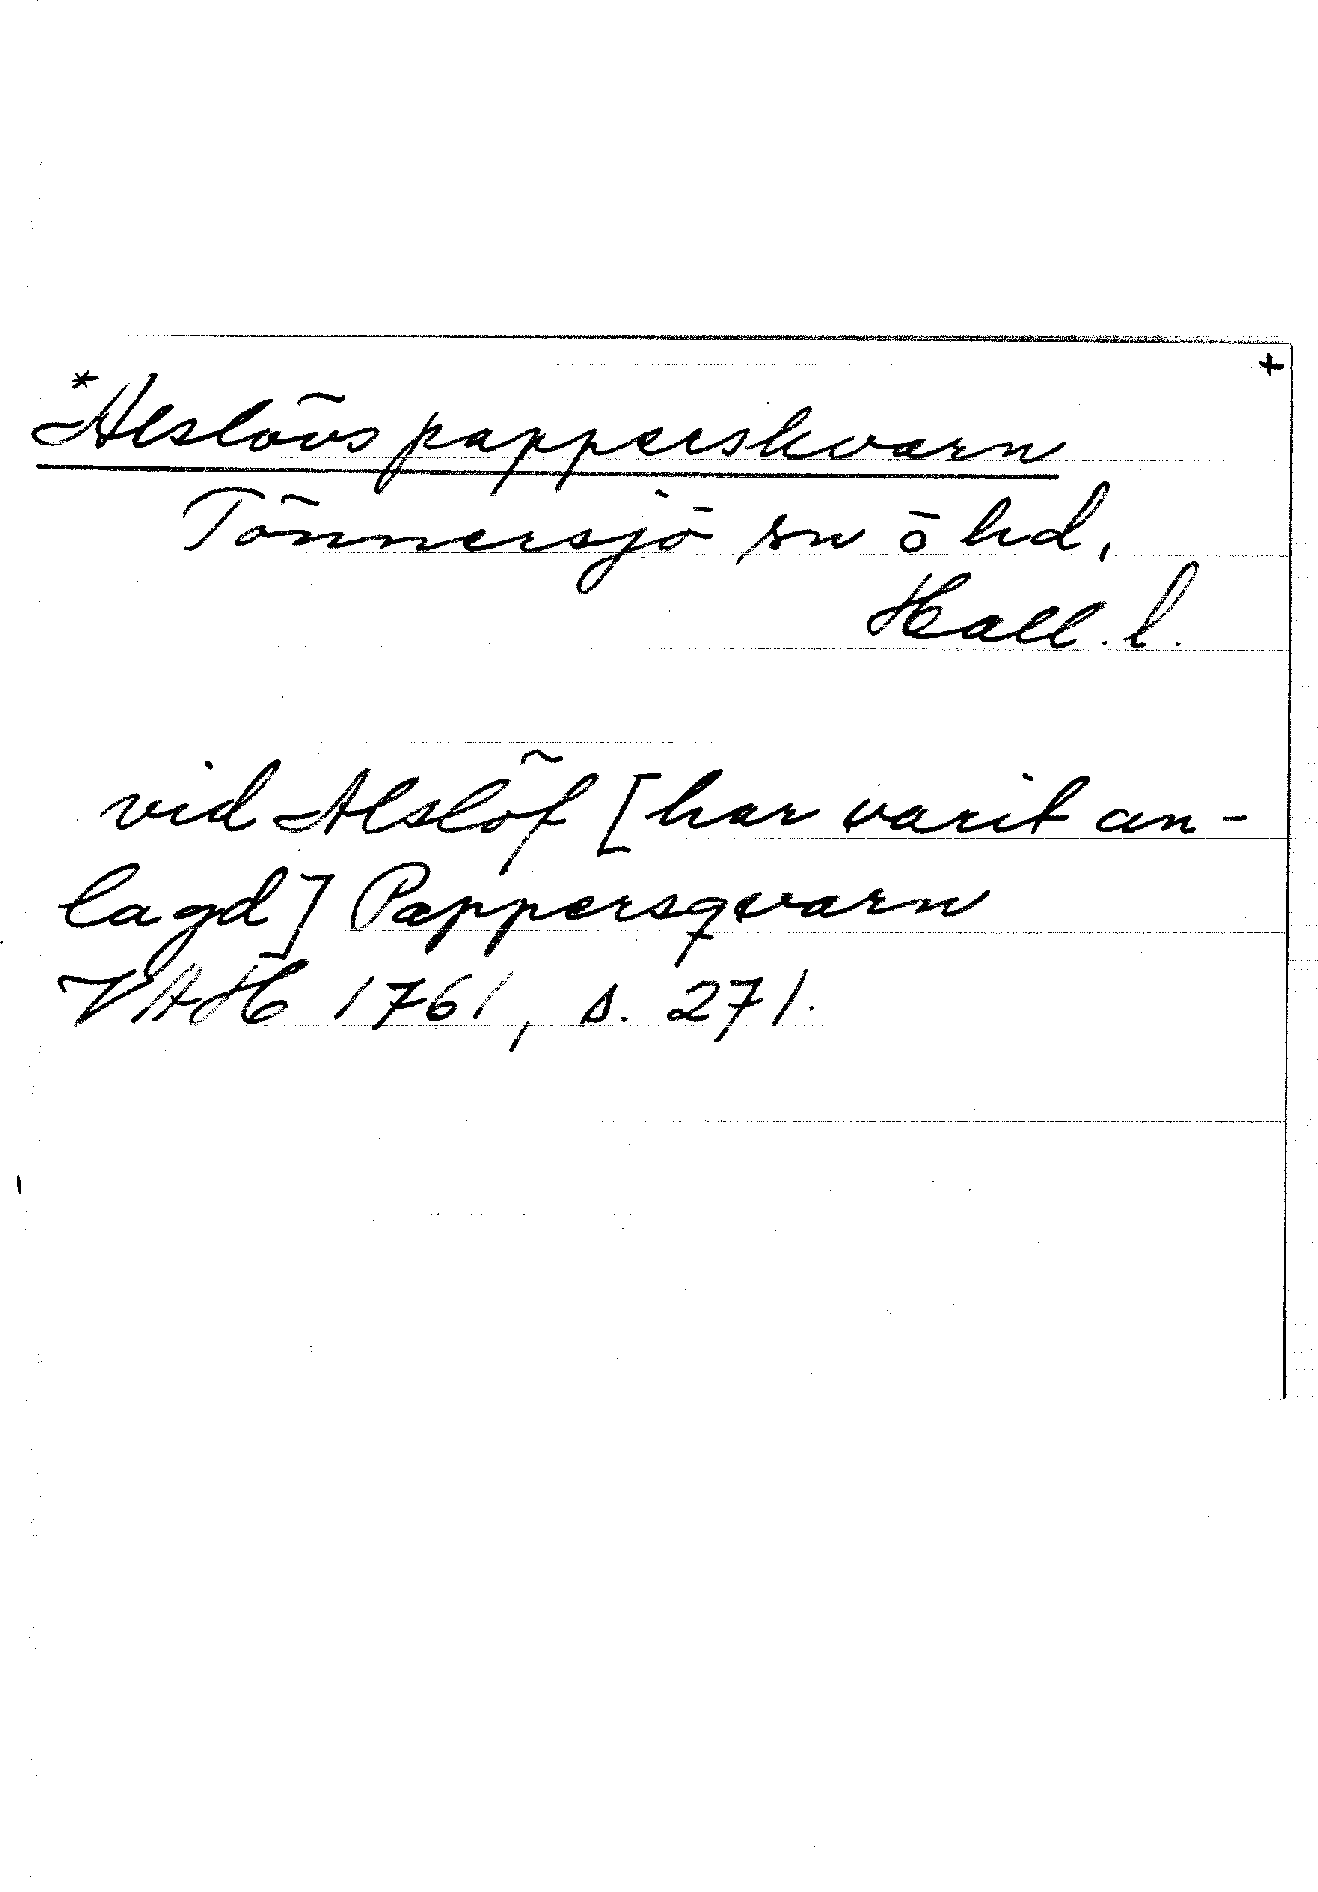 *Alslövs papperskvarn +
Tönnersjö sn o hd,
Hall. l.
vid Alslöf [har varit an-
lagd] Pappersqvarn
VAH 1761, s. 271.